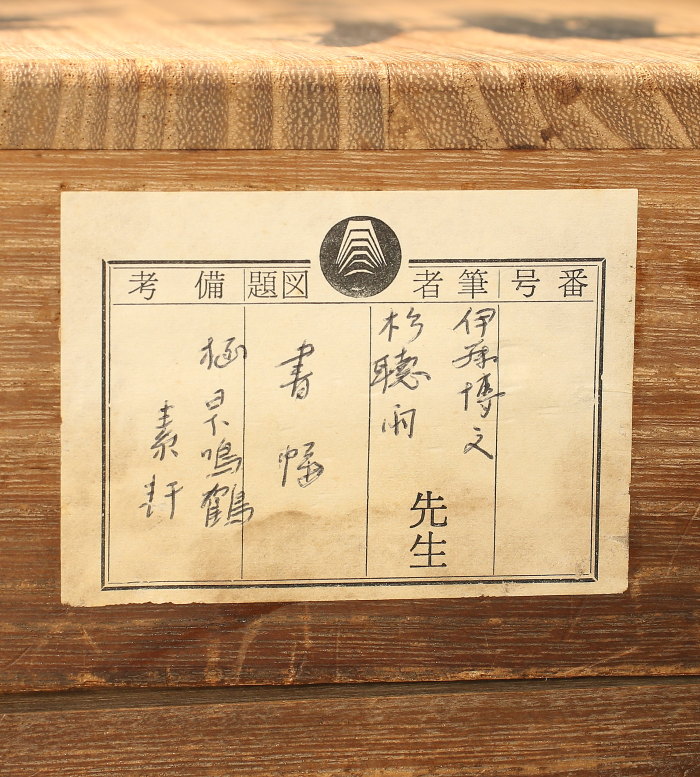 番号
筆者
図題
備考
伊藤博文
杉聴雨
先生
書幅
日下鳴鶴
素軒